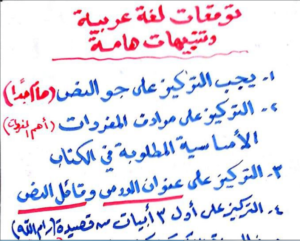 توقعات لغة عربية
وتنبيهات هامة
١- يجب التركيز على جو النص (مؤكد!)
٢- التركيز على مرادف المفردات
الأساسية المطلوبة في الكتاب
٣- التركيز على عنوان الدرس وتأمل النص
٤- التركيز على أول ٣ أبيات من قصيدة (رام الله)